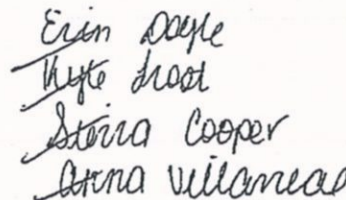 Erin Doyle
Kyle Frost
Sierra Cooper
Anna Villarreal